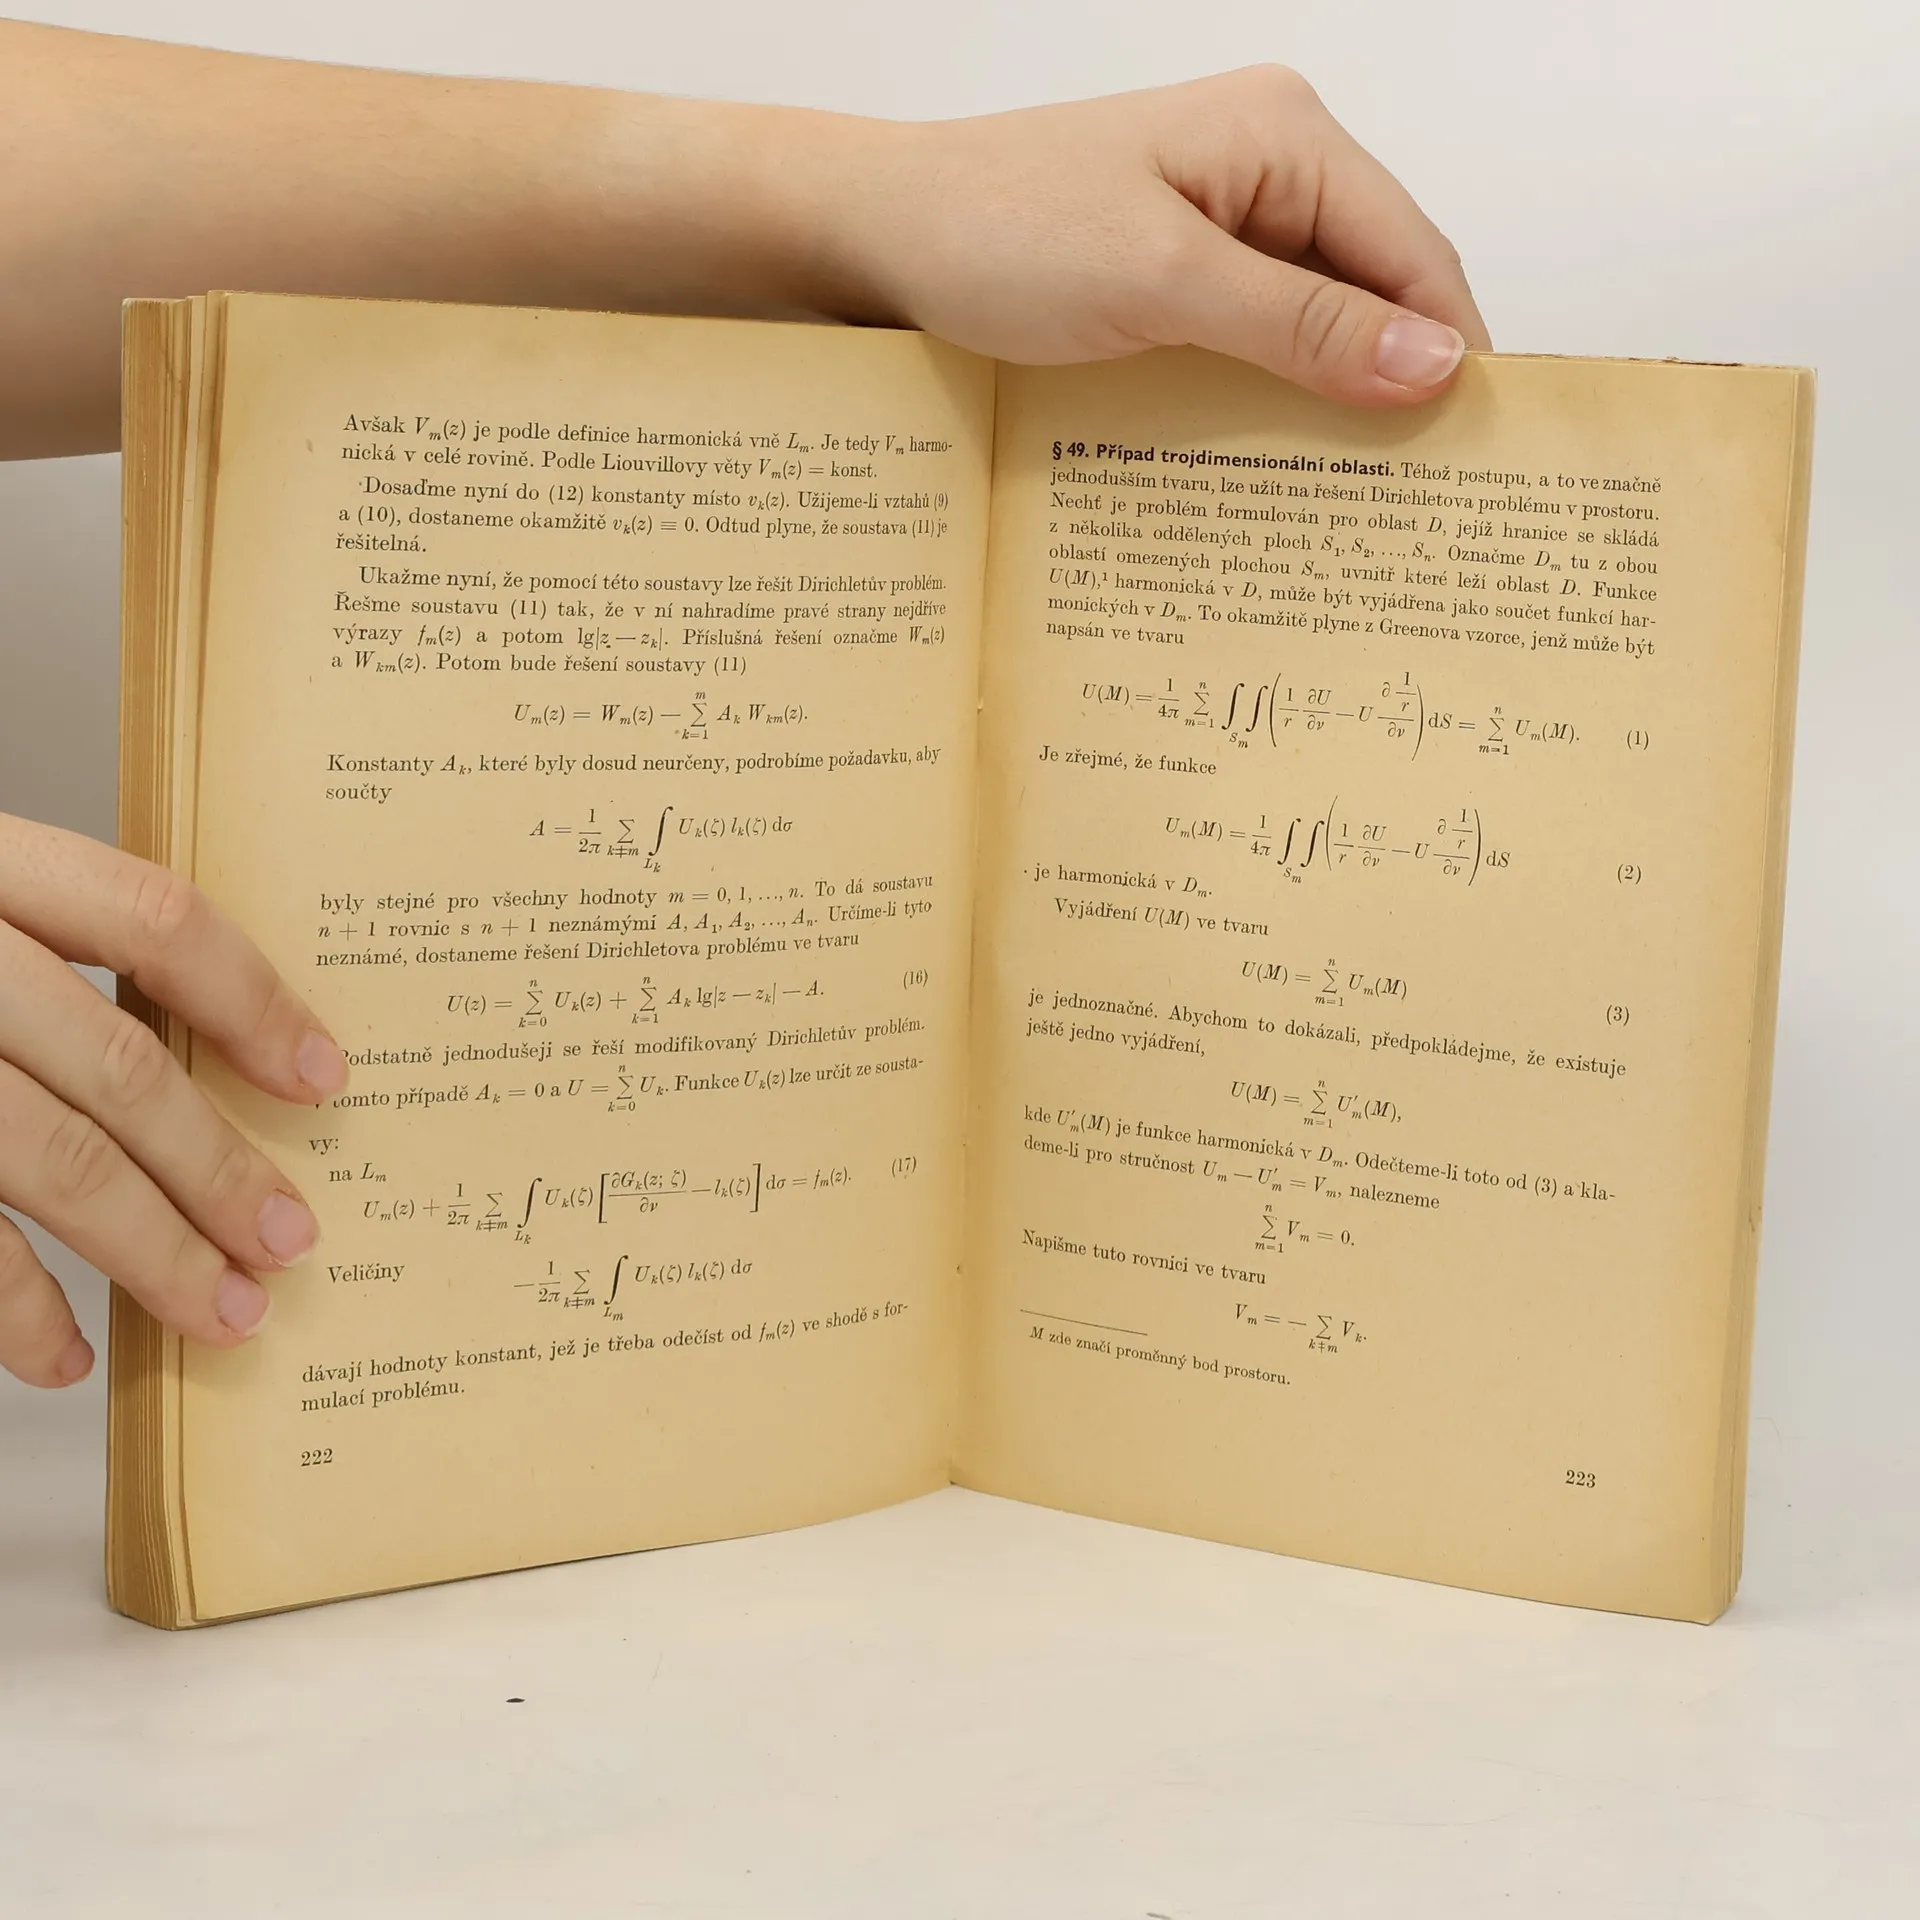 Avšak Vₘ(z) je podle definice harmonická vně Lₘ. Je tedy Vₘ harmo-
nická v celé rovině. Podle Liouvillovy věty Vₘ(z) = konst.
Dosaďme nyní do (12) konstanty místo vₖ(z). Užijeme-li vztahů (9)
a (10), dostaneme okamžitě vₖ(z) ≡ 0. Odtud plyne, že soustava (11) je
řešitelná.
Ukažme nyní, že pomocí této soustavy lze řešit Dirichletův problém.
Řešme soustavu (11) tak, že v ní nahradíme pravé strany nejdříve
výrazy fₘ(z) a potom lg|z — zₖ|. Příslušná řešení označme Wₘ(z)
a Wₖₘ(z). Potom bude řešení soustavy (11)
Uₘ(z) = Wₘ(z) — ∑_{k=1}^{m} Aₖ Wₖₘ(z).
Konstanty Aₖ, které byly dosud neurčeny, podrobíme požadavku, aby
součty
A = 1/2π ∑_{k≠m} ∫_{Lₖ} Uₖ(ζ) lₖ(ζ) dσ
byly stejné pro všechny hodnoty m = 0, 1, ..., n. To dá soustavu
n + 1 rovnic s n + 1 neznámými A, A₁, A₂, ..., Aₙ. Určíme-li tyto
neznámé, dostaneme řešení Dirichletova problému ve tvaru
U(z) = ∑_{k=0}^{n} Uₖ(z) + ∑_{k=1}^{n} Aₖ lg|z — zₖ| — A. (16)
Podstatně jednodušeji se řeší modifikovaný Dirichletův problém.
V tomto případě Aₖ = 0 a U = ∑_{k=0}^{n} Uₖ. Funkce Uₖ(z) lze určit ze sousta-
vy:
na Lₘ
Uₘ(z) + 1/2π ∑_{k≠m} ∫_{Lₖ} Uₖ(ζ) [∂Gₖ(z; ζ)/∂ν — lₖ(ζ)] dσ = fₘ(z). (17)
Veličiny — 1/2π ∑_{k≠m} ∫_{Lₘ} Uₖ(ζ) lₖ(ζ) dσ
dávají hodnoty konstant, jež je třeba odečíst od fₘ(z) ve shodě s for-
mulací problému.
222
§ 49. Případ trojdimensionální oblasti. Téhož postupu, a to ve značně
jednodušším tvaru, lze užít na řešení Dirichletova problému v prostoru.
Nechť je problém formulován pro oblast D, jejíž hranice se skládá
z několika oddělených ploch S₁, S₂, ..., Sₙ. Označme Dₘ tu z obou
oblastí omezených plochou Sₘ, uvnitř které leží oblast D. Funkce
U(M),¹ harmonická v D, může být vyjádřena jako součet funkcí har-
monických v Dₘ. To okamžitě plyne z Greenova vzorce, jenž může být
napsán ve tvaru
U(M) = 1/4π ∑_{m=1}^{n} ∫∫_{Sₘ} (1/r ∂U/∂ν — U ∂(1/r)/∂ν) dS = ∑_{m=1}^{n} Uₘ(M). (1)
Je zřejmé, že funkce
Uₘ(M) = 1/4π ∫∫_{Sₘ} (1/r ∂U/∂ν — U ∂(1/r)/∂ν) dS (2)
je harmonická v Dₘ.
Vyjádření U(M) ve tvaru
U(M) = ∑_{m=1}^{n} Uₘ(M) (3)
je jednoznačné. Abychom to dokázali, předpokládejme, že existuje
ještě jedno vyjádření,
U(M) = ∑_{m=1}^{n} U′ₘ(M),
kde U′ₘ(M) je funkce harmonická v Dₘ. Odečteme-li toto od (3) a kla-
deme-li pro stručnost Uₘ — U′ₘ = Vₘ, nalezneme
∑_{m=1}^{n} Vₘ = 0.
Napišme tuto rovnici ve tvaru
Vₘ = — ∑_{k≠m} Vₖ.
M zde značí proměnný bod prostoru.
223